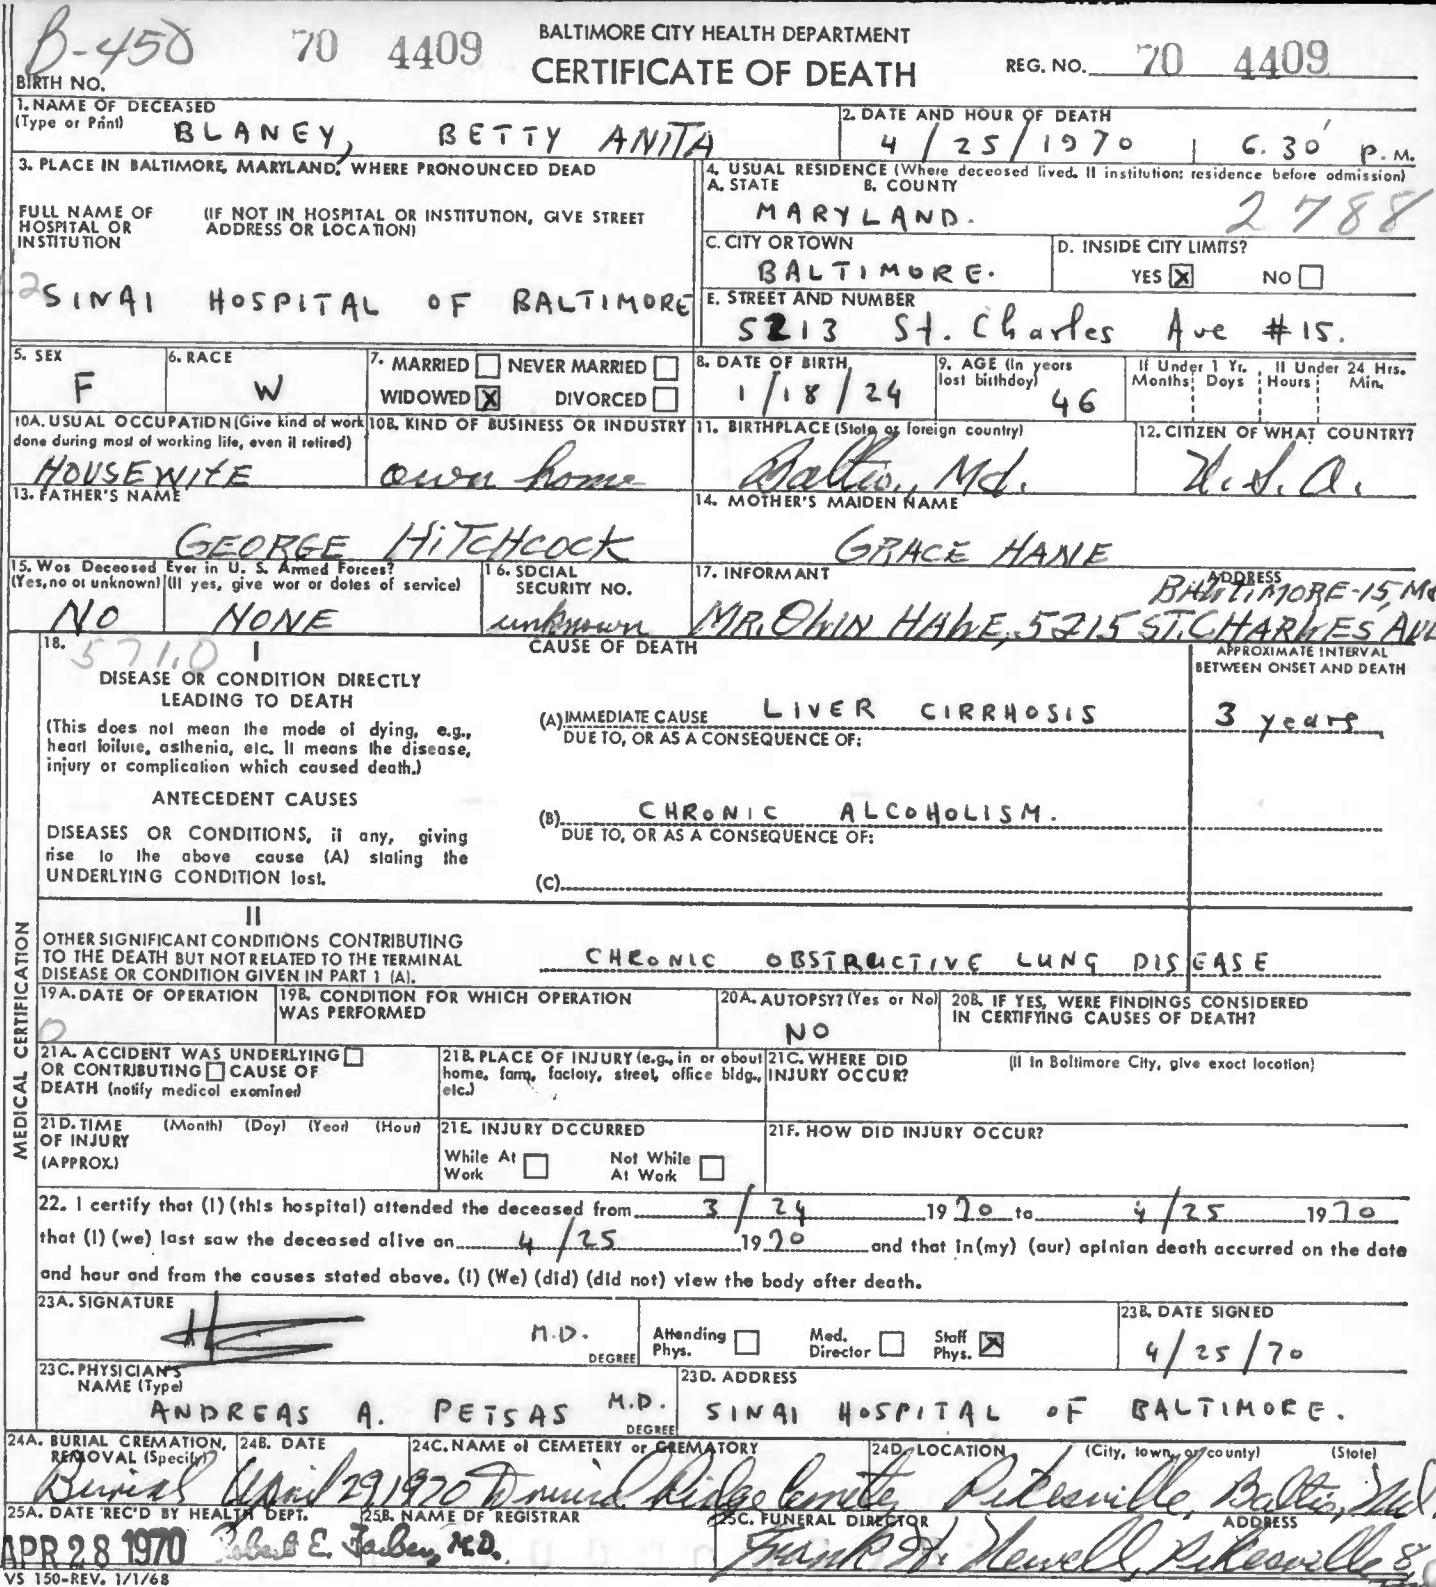 B-450 70 4409 BALTIMORE CITY HEALTH DEPARTMENT
BIRTH NO. CERTIFICATE OF DEATH REG. NO. 70 4409
1. NAME OF DECEASED
(Type or Print) BLANEY, BETTY ANITA
2. DATE AND HOUR OF DEATH
4/25/1970 | 6.30 P.M.
3. PLACE IN BALTIMORE, MARYLAND, WHERE PRONOUNCED DEAD
FULL NAME OF HOSPITAL OR INSTITUTION
(IF NOT IN HOSPITAL OR INSTITUTION, GIVE STREET
ADDRESS OR LOCATION)
SINAI HOSPITAL OF BALTIMORE
4. USUAL RESIDENCE (Where deceased lived. If institution: residence before admission)
A. STATE B. COUNTY
MARYLAND. 2788
C. CITY OR TOWN
BALTIMORE.
D. INSIDE CITY LIMITS?
YES X NO
E. STREET AND NUMBER
5213 St. Charles Ave #15.
5. SEX
F
6. RACE
W
7. MARRIED NEVER MARRIED
WIDOWED X DIVORCED
8. DATE OF BIRTH
1/18/24
9. AGE (In years
last birthday)
46
If Under 1 Yr. If Under 24 Hrs.
Months Days Hours Min.
10A. USUAL OCCUPATION (Give kind of work
done during most of working life, even if retired)
HOUSEWIFE
10B. KIND OF BUSINESS OR INDUSTRY
own home
11. BIRTHPLACE (State or foreign country)
Balto., Md.
12. CITIZEN OF WHAT COUNTRY?
U.S.A.
13. FATHER'S NAME
GEORGE HITCHCOCK
14. MOTHER'S MAIDEN NAME
GRACE HANE
15. Was Deceased Ever in U. S. Armed Forces?
(Yes, no or unknown) (If yes, give war or dates of service)
NO NONE
16. SOCIAL
SECURITY NO.
unknown
17. INFORMANT ADDRESS
BALTIMORE-15, Md
MR. HANE, 5215 ST. CHARLES AVE
MEDICAL CERTIFICATION
18. 571.0 I CAUSE OF DEATH
APPROXIMATE INTERVAL
BETWEEN ONSET AND DEATH
DISEASE OR CONDITION DIRECTLY
LEADING TO DEATH
(This does not mean the mode of dying, e.g.,
heart failure, asthenia, etc. It means the disease,
injury or complication which caused death.)
(A) IMMEDIATE CAUSE LIVER CIRRHOSIS 3 years
DUE TO, OR AS A CONSEQUENCE OF:
ANTECEDENT CAUSES
DISEASES OR CONDITIONS, if any, giving
rise to the above cause (A) stating the
UNDERLYING CONDITION last.
(B) CHRONIC ALCOHOLISM.
DUE TO, OR AS A CONSEQUENCE OF:
(C)
II
OTHER SIGNIFICANT CONDITIONS CONTRIBUTING
TO THE DEATH BUT NOT RELATED TO THE TERMINAL
DISEASE OR CONDITION GIVEN IN PART 1 (A).
CHRONIC OBSTRUCTIVE LUNG DISEASE
19A. DATE OF OPERATION
0
19B. CONDITION FOR WHICH OPERATION
WAS PERFORMED
20A. AUTOPSY? (Yes or No)
NO
20B. IF YES, WERE FINDINGS CONSIDERED
IN CERTIFYING CAUSES OF DEATH?
21A. ACCIDENT WAS UNDERLYING
OR CONTRIBUTING CAUSE OF
DEATH (notify medical examiner)
21B. PLACE OF INJURY (e.g., in or about
home, farm, factory, street, office bldg.,
etc.)
21C. WHERE DID (If in Baltimore City, give exact location)
INJURY OCCUR?
21D. TIME (Month) (Day) (Year) (Hour)
OF INJURY
(APPROX.)
21E. INJURY OCCURRED
While At Work Not While At Work
21F. HOW DID INJURY OCCUR?
22. I certify that (I) (this hospital) attended the deceased from 3/24 1970 to 4/25 1970
that (I) (we) last saw the deceased alive on 4/25 1970 and that in (my) (our) opinion death occurred on the date
and hour and from the causes stated above. (I) (We) (did) (did not) view the body after death.
23A. SIGNATURE
M.D.
DEGREE
Attending Phys. Med. Director Staff Phys. X
23B. DATE SIGNED
4/25/70
23C. PHYSICIAN'S
NAME (Type)
ANDREAS A. PETSAS M.D.
DEGREE
23D. ADDRESS
SINAI HOSPITAL OF BALTIMORE.
24A. BURIAL CREMATION,
REMOVAL (Specify)
Burial
24B. DATE
April 29, 1970
24C. NAME of CEMETERY or CREMATORY
Druid Ridge Cemetery
24D. LOCATION (City, town, or county) (State)
Pikesville, Balto., Md.
25A. DATE REC'D BY HEALTH DEPT.
APR 28 1970
25B. NAME OF REGISTRAR
Robert E. Farber, M.D.
25C. FUNERAL DIRECTOR ADDRESS
Frank H. Newell, Pikesville 8,
VS 150-REV. 1/1/68